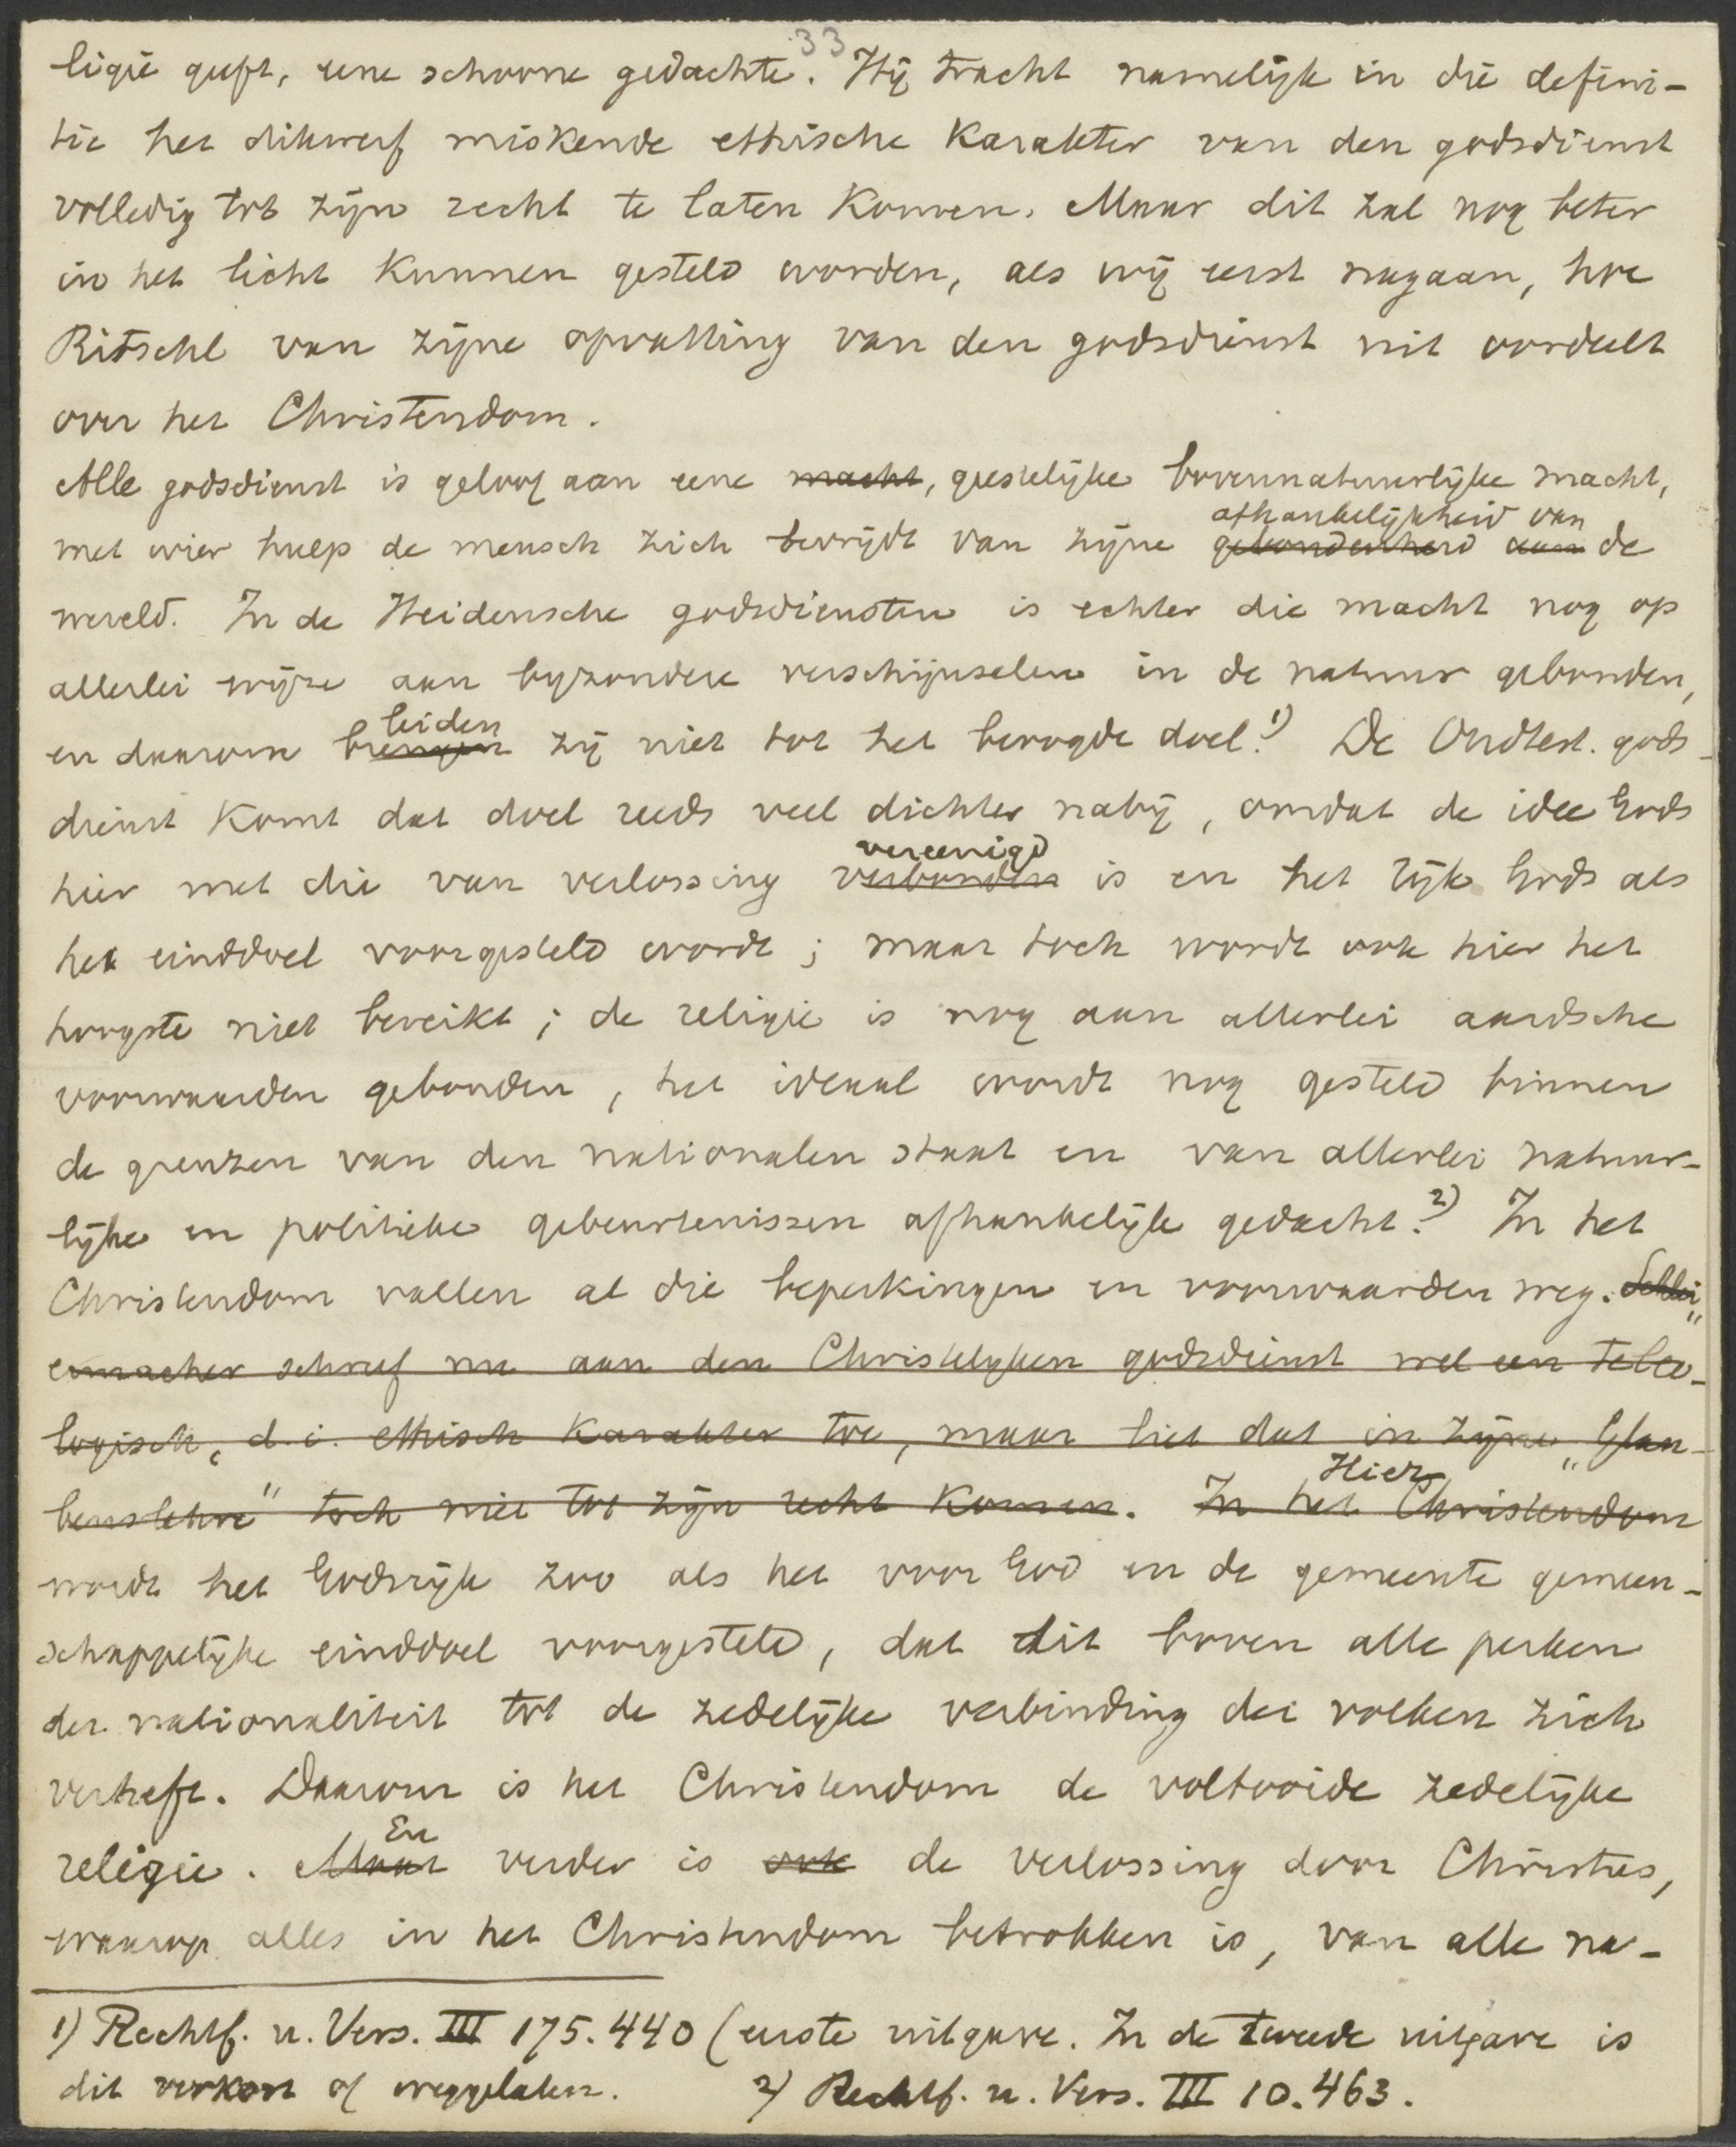 33
ligie geeft, eene schoone gedachte. Hij tracht namelijk in die defini-
tie het dikwerf miskende ethische karakter van den godsdienst
volledig tot zijn recht te laten komen. Maar dit zal nog beter
in het licht kunnen gesteld worden, als wij eerst nagaan, hoe
Ritschl van zijne opvatting van den godsdienst uit oordeelt
over het Christendom.
Alle godsdienst is geloof aan eene macht, geestelijke bovennatuurlijke macht,
afhankelijkheid van
met wier hulp de mensch zich bevrijdt van zijne gebondenheid aan de
wereld. In de Heidensche godsdiensten is echter die macht nog op
allerlei wijze aan byzondere verschijnselen in de natuur gebonden,
leiden
en daarom brengen zij niet tot het beoogde doel.1) De Oudtest. gods-
dienst komt dat doel reeds veel dichter nabij, omdat de idee Gods
vereenigd
hier met die van verlossing verbonden is en het rijk Gods als
het einddoel voorgesteld wordt; maar toch wordt ook hier het
hoogste niet bereikt; de religie is nog aan allerlei aardsche
voorwaarden gebonden, het ideaal wordt nog gesteld binnen
de grenzen van den nationalen staat en van allerlei natuur-
lijke en politieke gebeurtenissen afhankelijk gedacht.2) In het
Christendom vallen al die beperkingen en voorwaarden weg. Schlei„
ermacher schreef nu aan den Christelyken godsdienst wel een teleo-
logisch, d.i. ethisch karakter toe, maar liet dat in zijne „Glau-
benslehre" toch niet tot zijn recht komen. In het Christendom
Hier
wordt het Godsrijk zoo als het voor God en de gemeente gemeen-
schappelijke einddoel voorgesteld, dat dit boven alle perken
der nationaliteit tot de zedelijke verbinding der volken zich
verheft. Daarom is het Christendom de voltooide zedelijke
En
religie. Maar verder is ook de verlossing door Christus,
waarop alles in het Christendom betrokken is, van alle na-
1) Rechtf. u. Vers. III 175. 440 (eerste uitgave. In de tweede uitgave is
dit verkort of weggelaten. 2) Rechtf. u. Vers. III 10. 463.